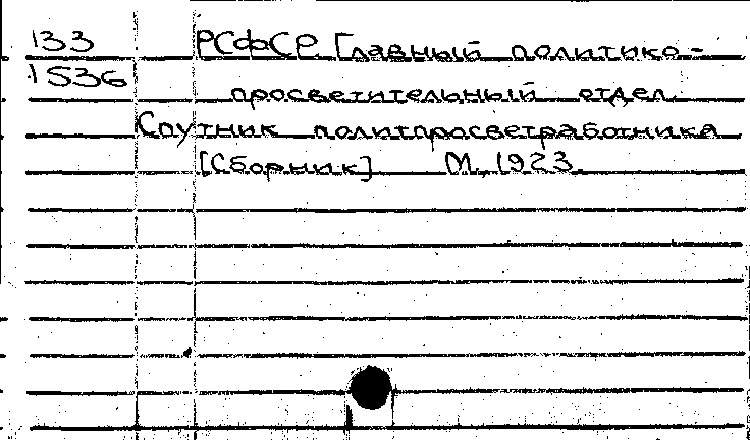 133 РСФСР. Главный политико-
1536 просветительный отдел.
Спутник политпросветработника
[Сборник] М., 1923.